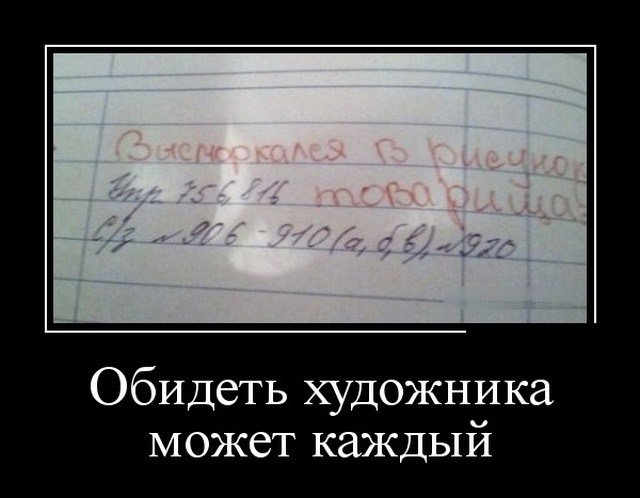 Высморкался в рисунок
Упр 756, 816 товарища!
С/з №906-910(а,б,в), №920
Обидеть художника
может каждый